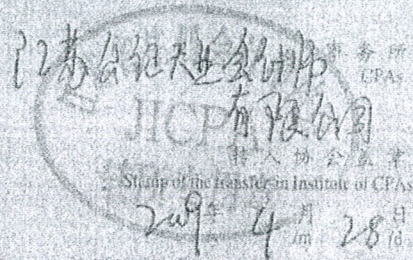 江苏公证天业会计师事务所
CPAs
有限公司
JICPA
转入协会盖章
Stamp of the transfer-in Institute of CPAs
2009年 4月 28日
/m /d